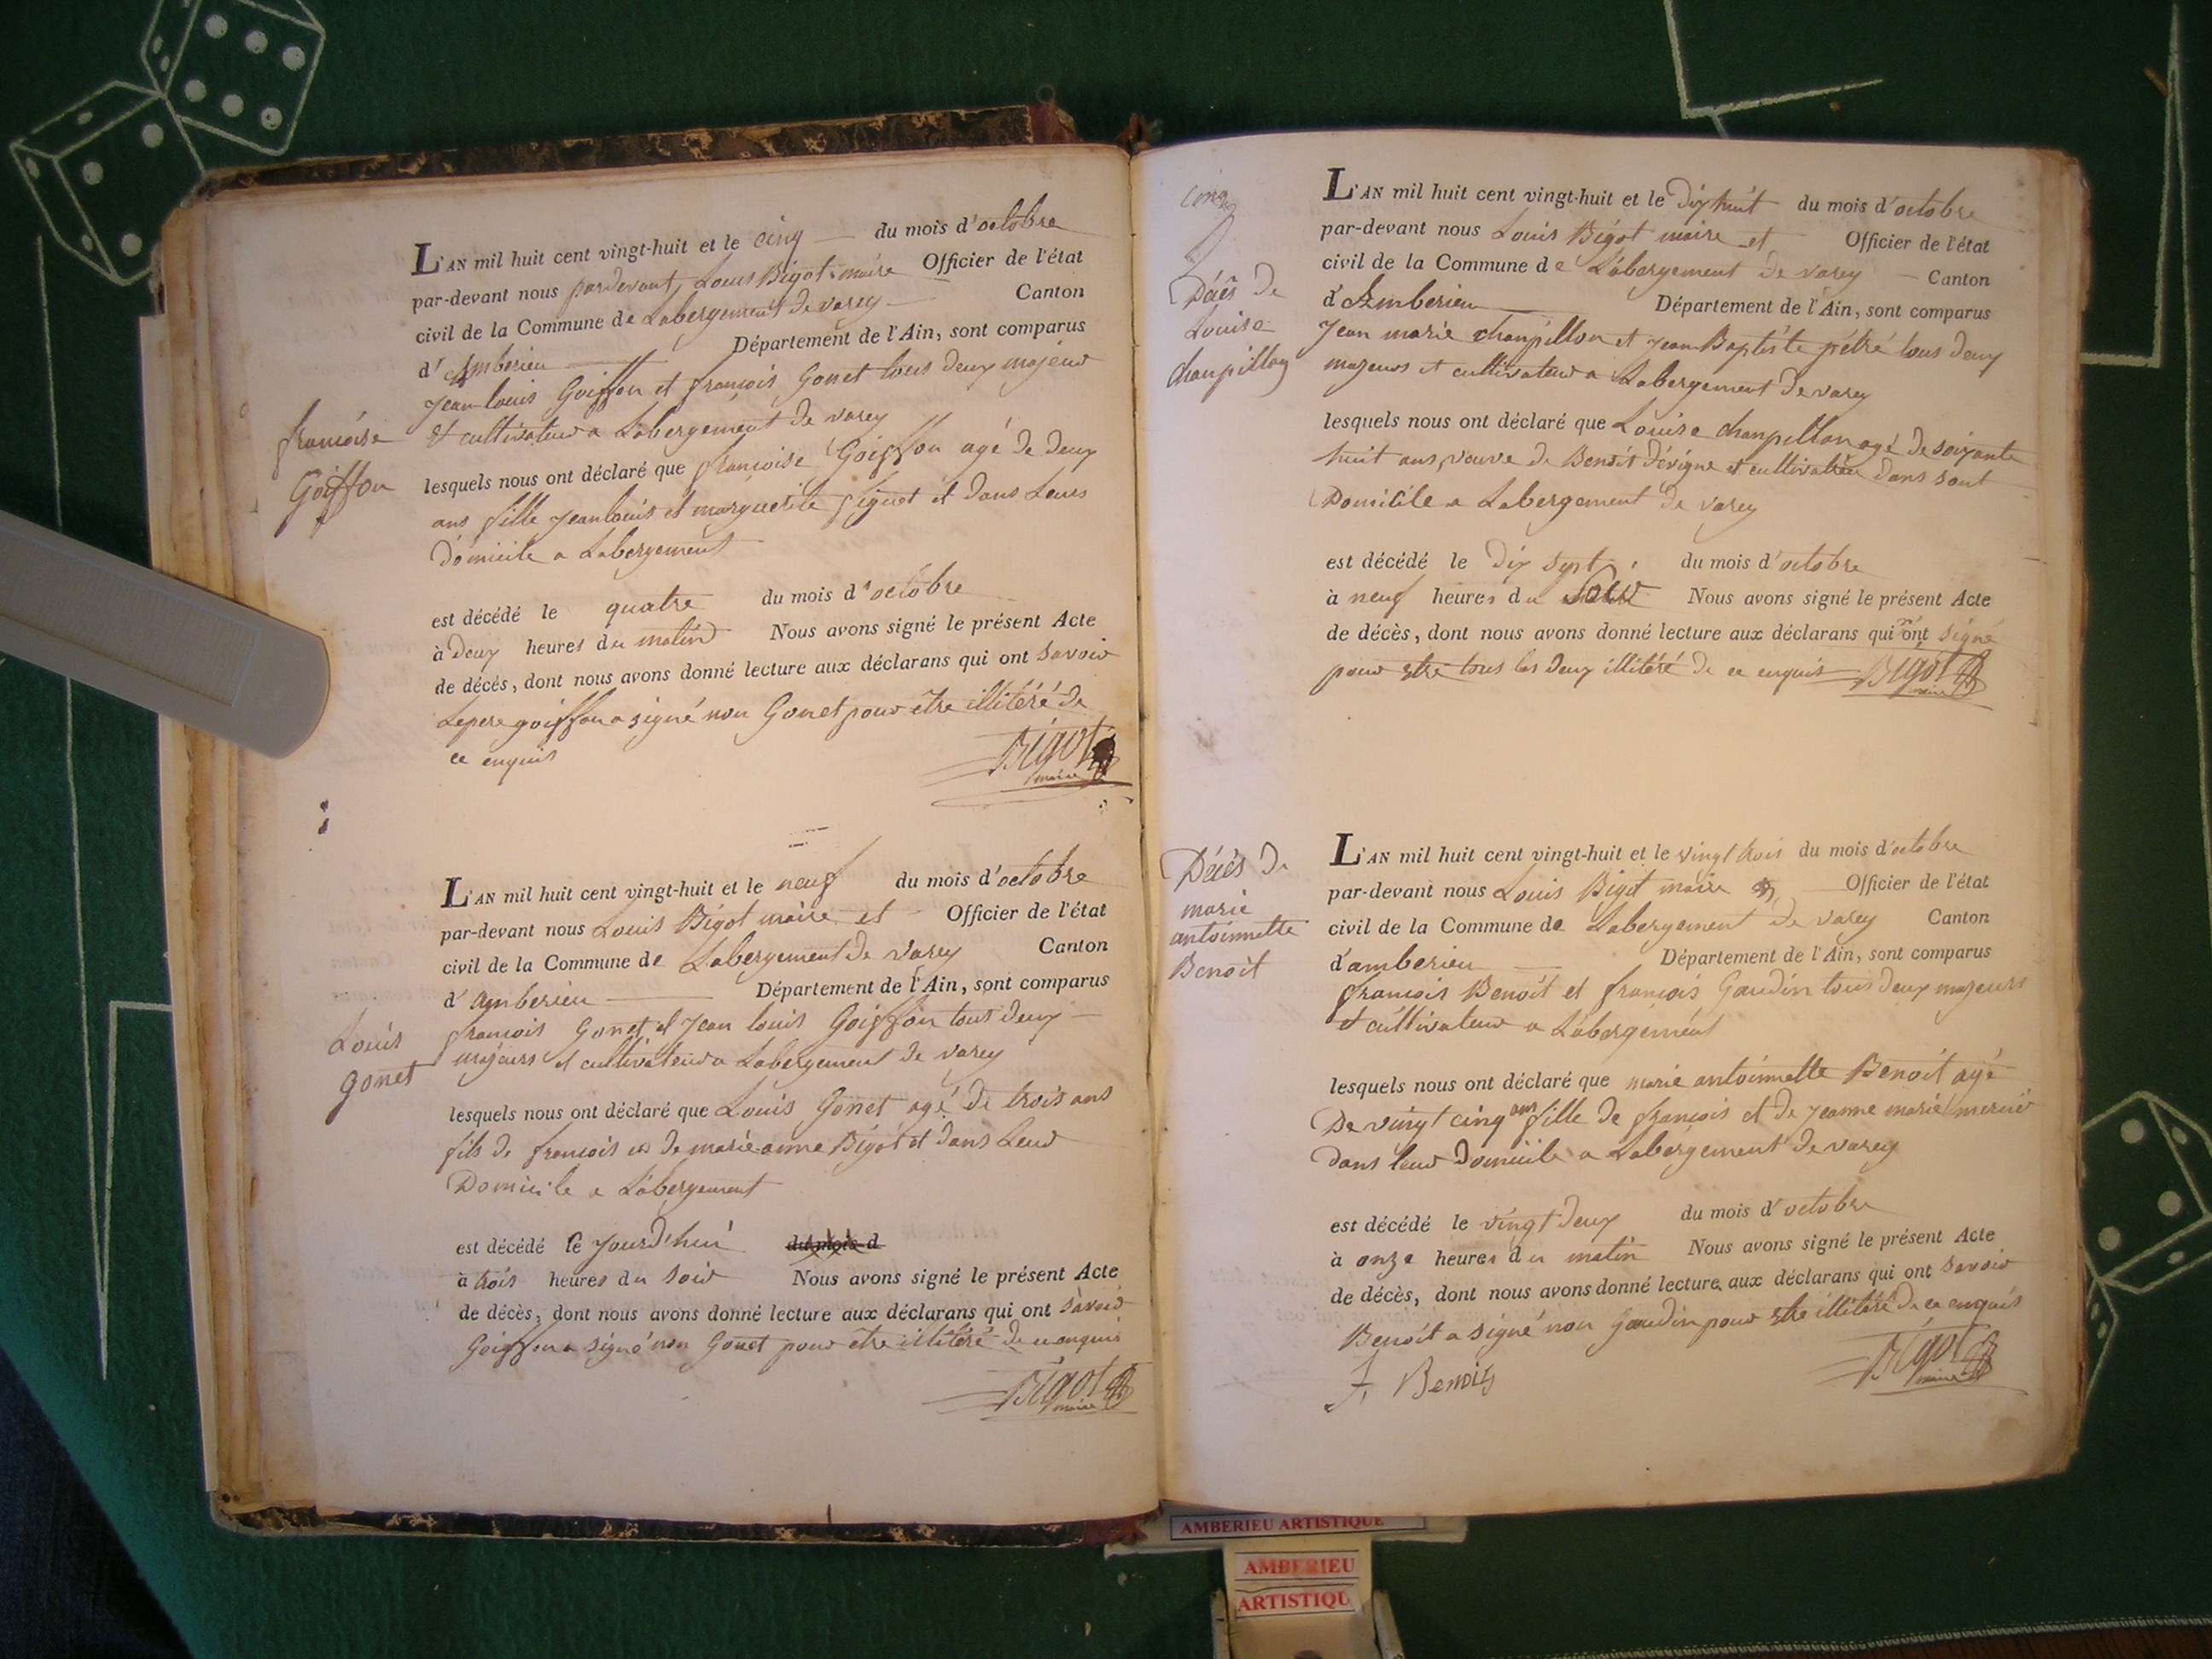 L'AN mil huit cent vingt-huit et le cinq du mois d'octobre
par-devant nous pardevant Louis Bigot maire Officier de l'état
civil de la Commune de Labergement de varey Canton
d'Amberieu Département de l'Ain, sont comparus
Jean louis Goiffon et francois Gonet tous deux majeur
et cultivateur a Labergement de varey
francoise
Goiffon
lesquels nous ont déclaré que francoise Goiffon agé de deux
ans fille jean louis et marguerite et dans Leurs
domicile a Labergement
est décédé le quatre du mois d'octobre
à deux heures du matin Nous avons signé le présent Acte
de décès, dont nous avons donné lecture aux déclarans qui ont savoir
Lepere goiffon a signé non Gonet pour être illitéré de
ce enquis
Bigot
maire
L'AN mil huit cent vingt-huit et le neuf du mois d'octobre
par-devant nous Louis Bigot maire et Officier de l'état
civil de la Commune de Labergement de varey Canton
d'amberieu Département de l'Ain, sont comparus
Louis
gonet
francois Gonet et Jean louis Goiffon tout deux
majeurs et cultivateur a Labergement de varey
lesquels nous ont déclaré que Louis Gonet agé de trois ans
fils de francois et de marie anne Bigot et dans Leur
Domicile a Labergement
est décédé le jourd'hui du mois d
à trois heures du soir Nous avons signé le présent Acte
de décès, dont nous avons donné lecture aux déclarans qui ont savoir
Goiffon a signé non Gonet pour etre illitéré de ce enquis
Bigot
maire
cinq
L'AN mil huit cent vingt-huit et le Dix huit du mois d'octobre
par-devant nous Louis Bigot maire et Officier de l'état
civil de la Commune de Labergement de varey Canton
d'Amberieu Département de l'Ain, sont comparus
Décés de
Louise
chanpillon
Jean marie chanpillon et jean Baptiste pétré tous deux
majeurs et cultivateur a Labergement de varey
lesquels nous ont déclaré que Louise chanpillon agé de soixante
huit ans, veuve de Benoit dévigne et cultivatrice dans sont
Domicile a Labergement de varey
est décédé le dix sept du mois d'octobre
à neuf heures du soir Nous avons signé le présent Acte
de décès, dont nous avons donné lecture aux déclarans qui n'ont signé
pour etre tous les deux illitéré de ce enquis Bigot
maire
L'AN mil huit cent vingt-huit et le vingt trois du mois d'octobre
par-devant nous Louis Bigot maire et Officier de l'état
civil de la Commune de Labergement de varey Canton
d'amberieu Département de l'Ain, sont comparus
Décés de
marie
antoinnette
Benoit
francois Benoit et francois Gaudin tous deux majeurs
et cultivateur a Labergement
lesquels nous ont déclaré que marie antoinnette Benoit agé
De vingt cinq ans fille de francois et de jeanne marie
dans leur domicile a Labergement de varey
est décédé le vingt deux du mois d'octobre
à onze heures du matin Nous avons signé le présent Acte
de décès, dont nous avons donné lecture aux déclarans qui ont savoir
Benoit a signé non Gaudin pour etre illitéré de ce enquis
f. Benoit
Bigot
maire
AMBERIEU ARTISTIQUE
AMBERIEU
ARTISTIQU